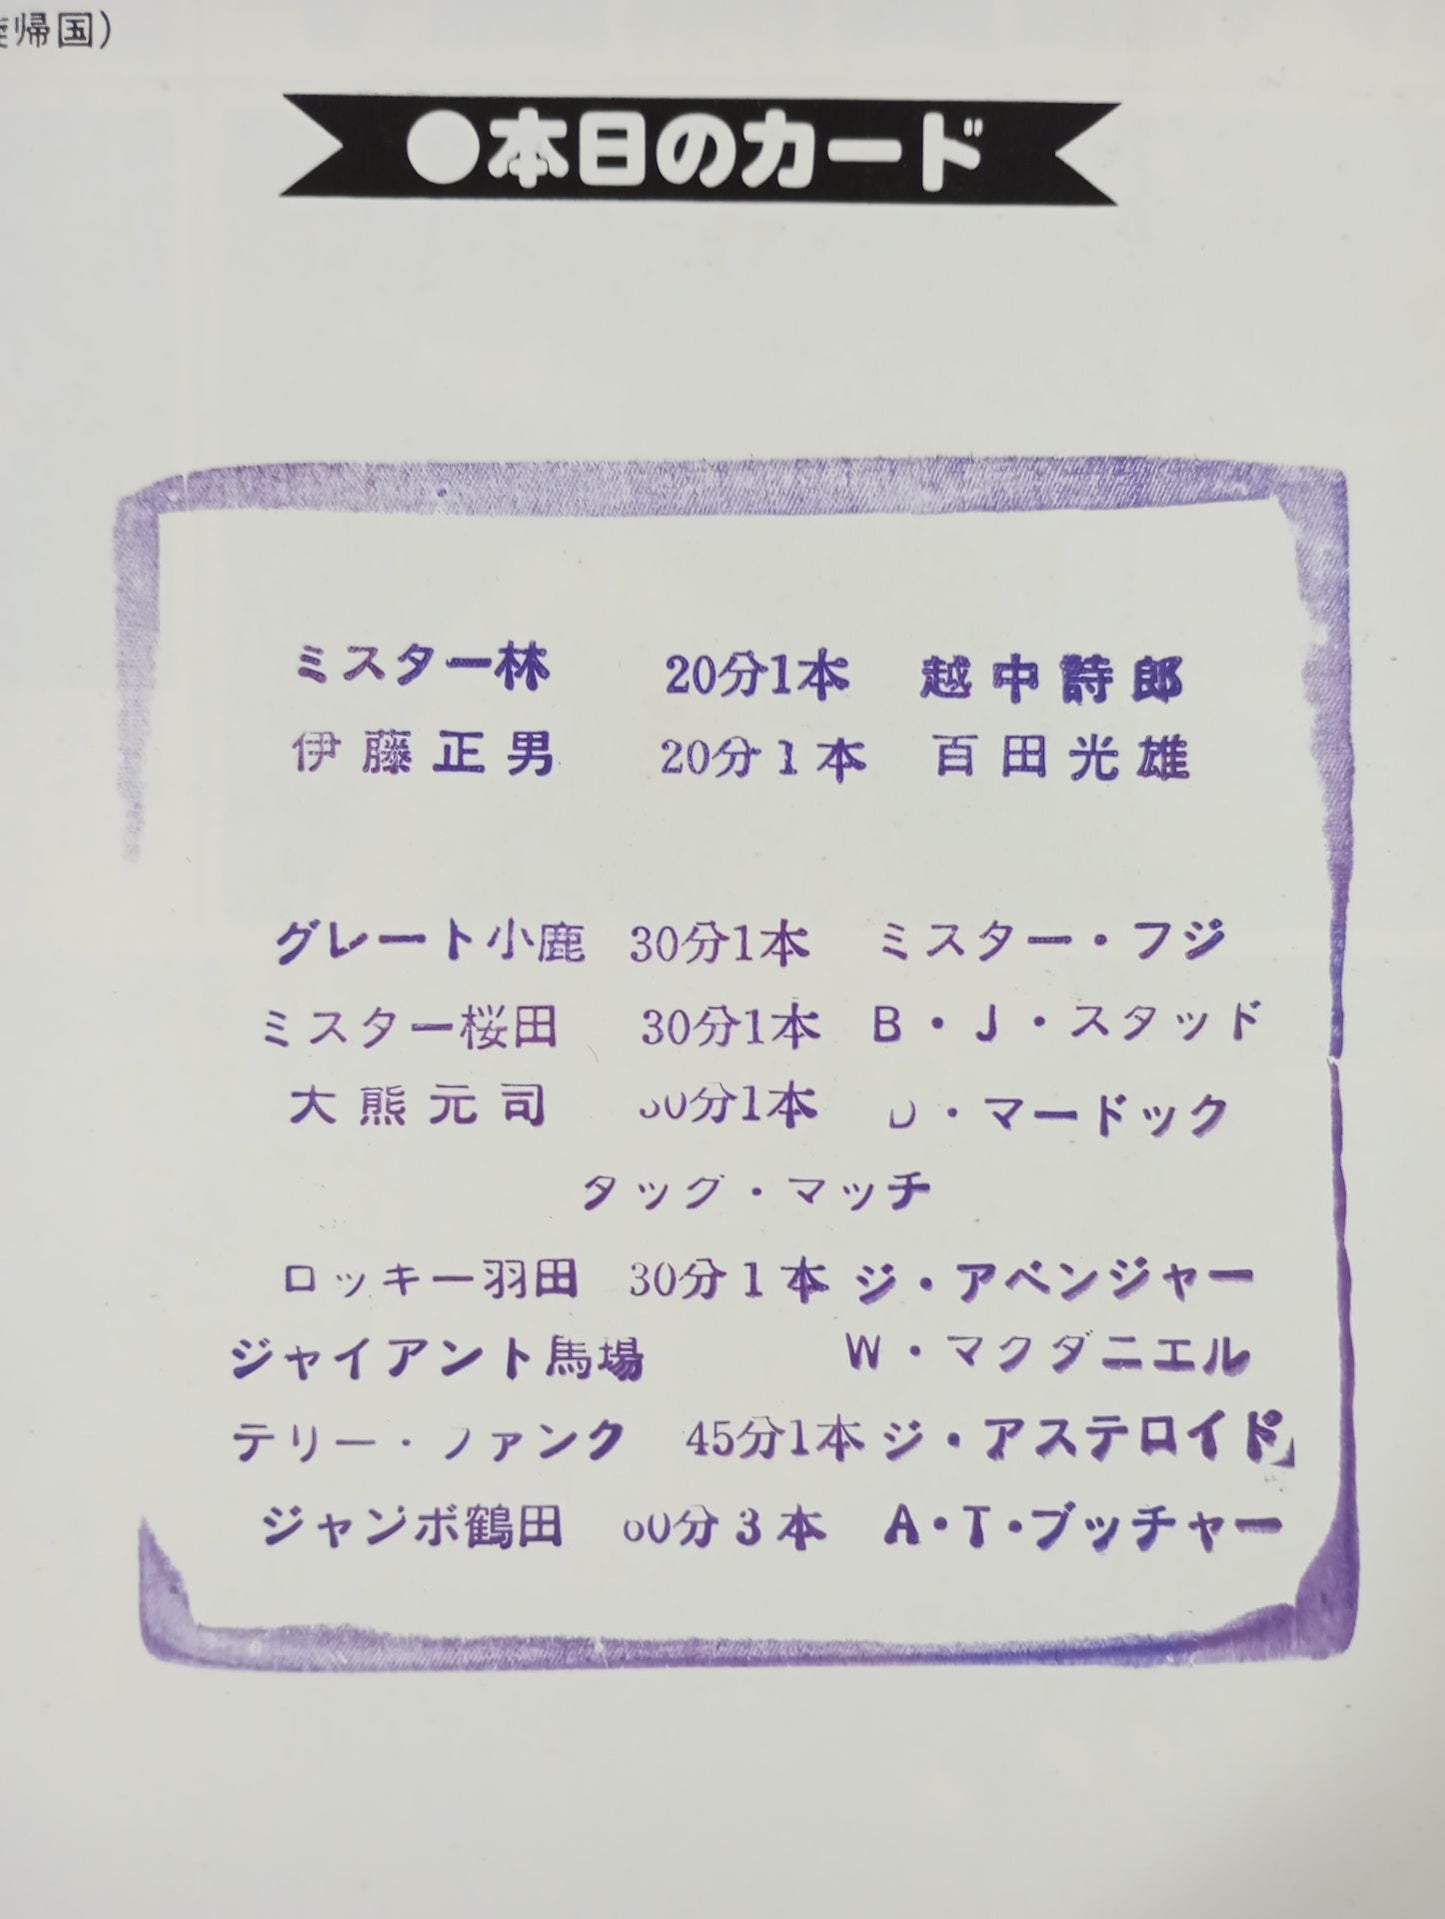 帰国)
●本日のカード
ミスター林 20分1本 越中詩郎
伊藤正男 20分1本 百田光雄
グレート小鹿 30分1本 ミスター・フジ
ミスター桜田 30分1本 B・J・スタッド
大熊元司 30分1本 D・マードック
タッグ・マッチ
ロッキー羽田 30分1本 ジ・アベンジャー
ジャイアント馬場 W・マクダニエル
テリー・ファンク 45分1本 ジ・アステロイド
ジャンボ鶴田 60分3本 A・T・ブッチャー